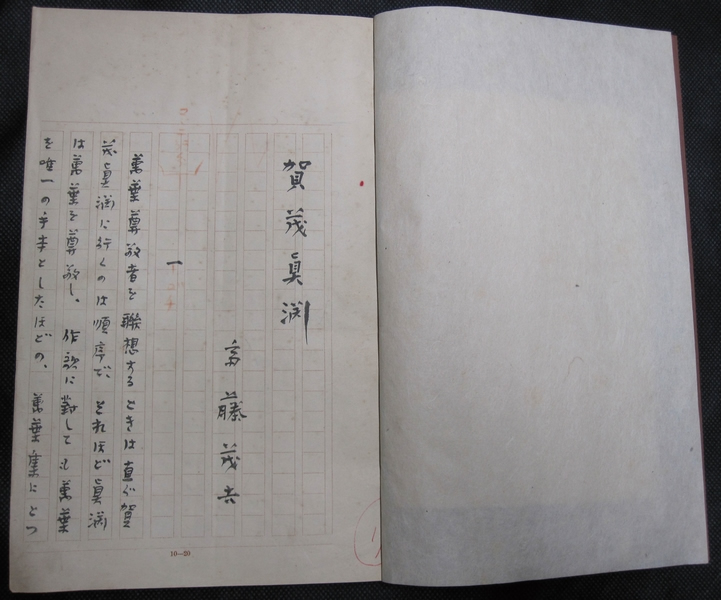 賀茂眞淵
斎藤茂吉
一
萬葉尊敬者を聯想するときは直ぐ賀
茂眞淵に行くのは順序で、それほど眞淵
は萬葉を尊敬し、作歌に對しても萬葉
を唯一の手本としたほどの、萬葉集にとつ
10—20